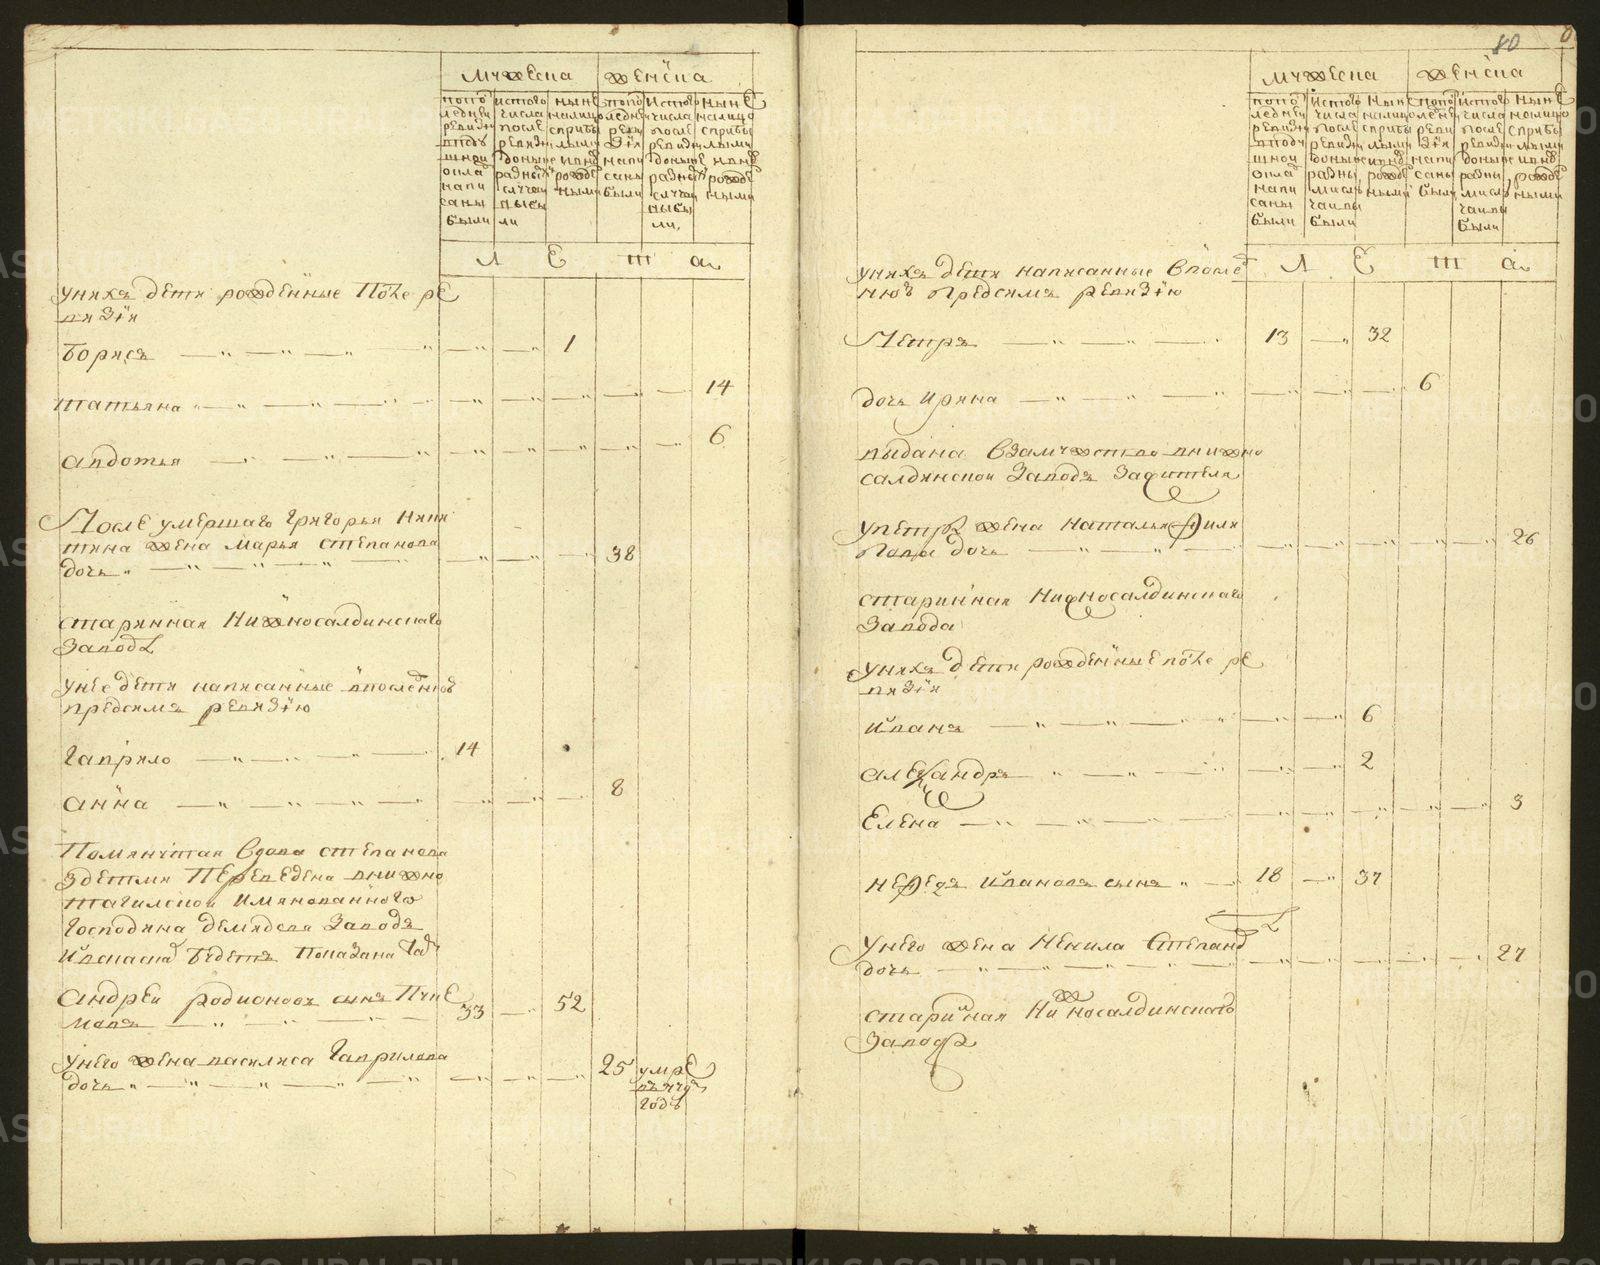 мужеска
женска
по по
следней
ревизии
в подъ
шной
окла
напи
саны
были
из того
числа
после
ревизии
доныне
разными
случаи
выбы
ли
ныне
налицо
с прибы
лыми
и вновь
рожде
нными
по по
следней
реви
зіи
напи
саны
были
из того
числа
после
ревизии
доныне
разными
случаи
выбы
ли,
ныне
налицо
с прибы
лыми
и вновь
рожде
нными
Л Е Т А
у них дети рожденные после ре
визіи
Борисъ 1
татьяна 14
авдотья 6
После умершаго григорья Ники
тина жена марья степанова
дочь 38
старинная Нижносалдинскаго
завода
у нее дети написанные в последнюю
пред сим ревизію
гаврило 14
анна 8
Помянутая вдова степанова
з детми Переведена в нижно
тагилской имянованного
господина демидова завод
и в сказке будет показана
андрей родионовъ сынъ
33 52
у него жена василиса гаврилова
дочь 25 умре
в
годъ
80
мужеска
женска
по по
следней
ревизии
в подъ
шной
окла
напи
саны
были
из того
числа
после
ревизии
доныне
разны
ми слу
чаи вы
были
ныне
налицо
с прибы
лыми
и вновь
рожде
нными
по по
следне
реви
зіи
напи
саны
были
из того
числа
после
ревизии
доныне
разны
ми слу
чаи вы
были
ныне
налицо
с прибы
лыми
и вновь
рожде
нными
Л Е Т А
у них дети написанные в послед
нюю пред сим ревизію
Петръ 13 32
дочь ирина 6
выдана в замужство в нижно
салдинской завод за жителя
у петра жена наталья Фили
пова дочь 26
старинная Нижносалдинскаго
завода
у них дети рожденные после ре
визіи
иванъ 6
александръ 2
Елена 3
нефедъ ивановъ сынъ 18 37
у него жена Ненила Степано
дочь 27
старинная Нижносалдинскаго
завода
METRIKI.GASO-URAL.RU